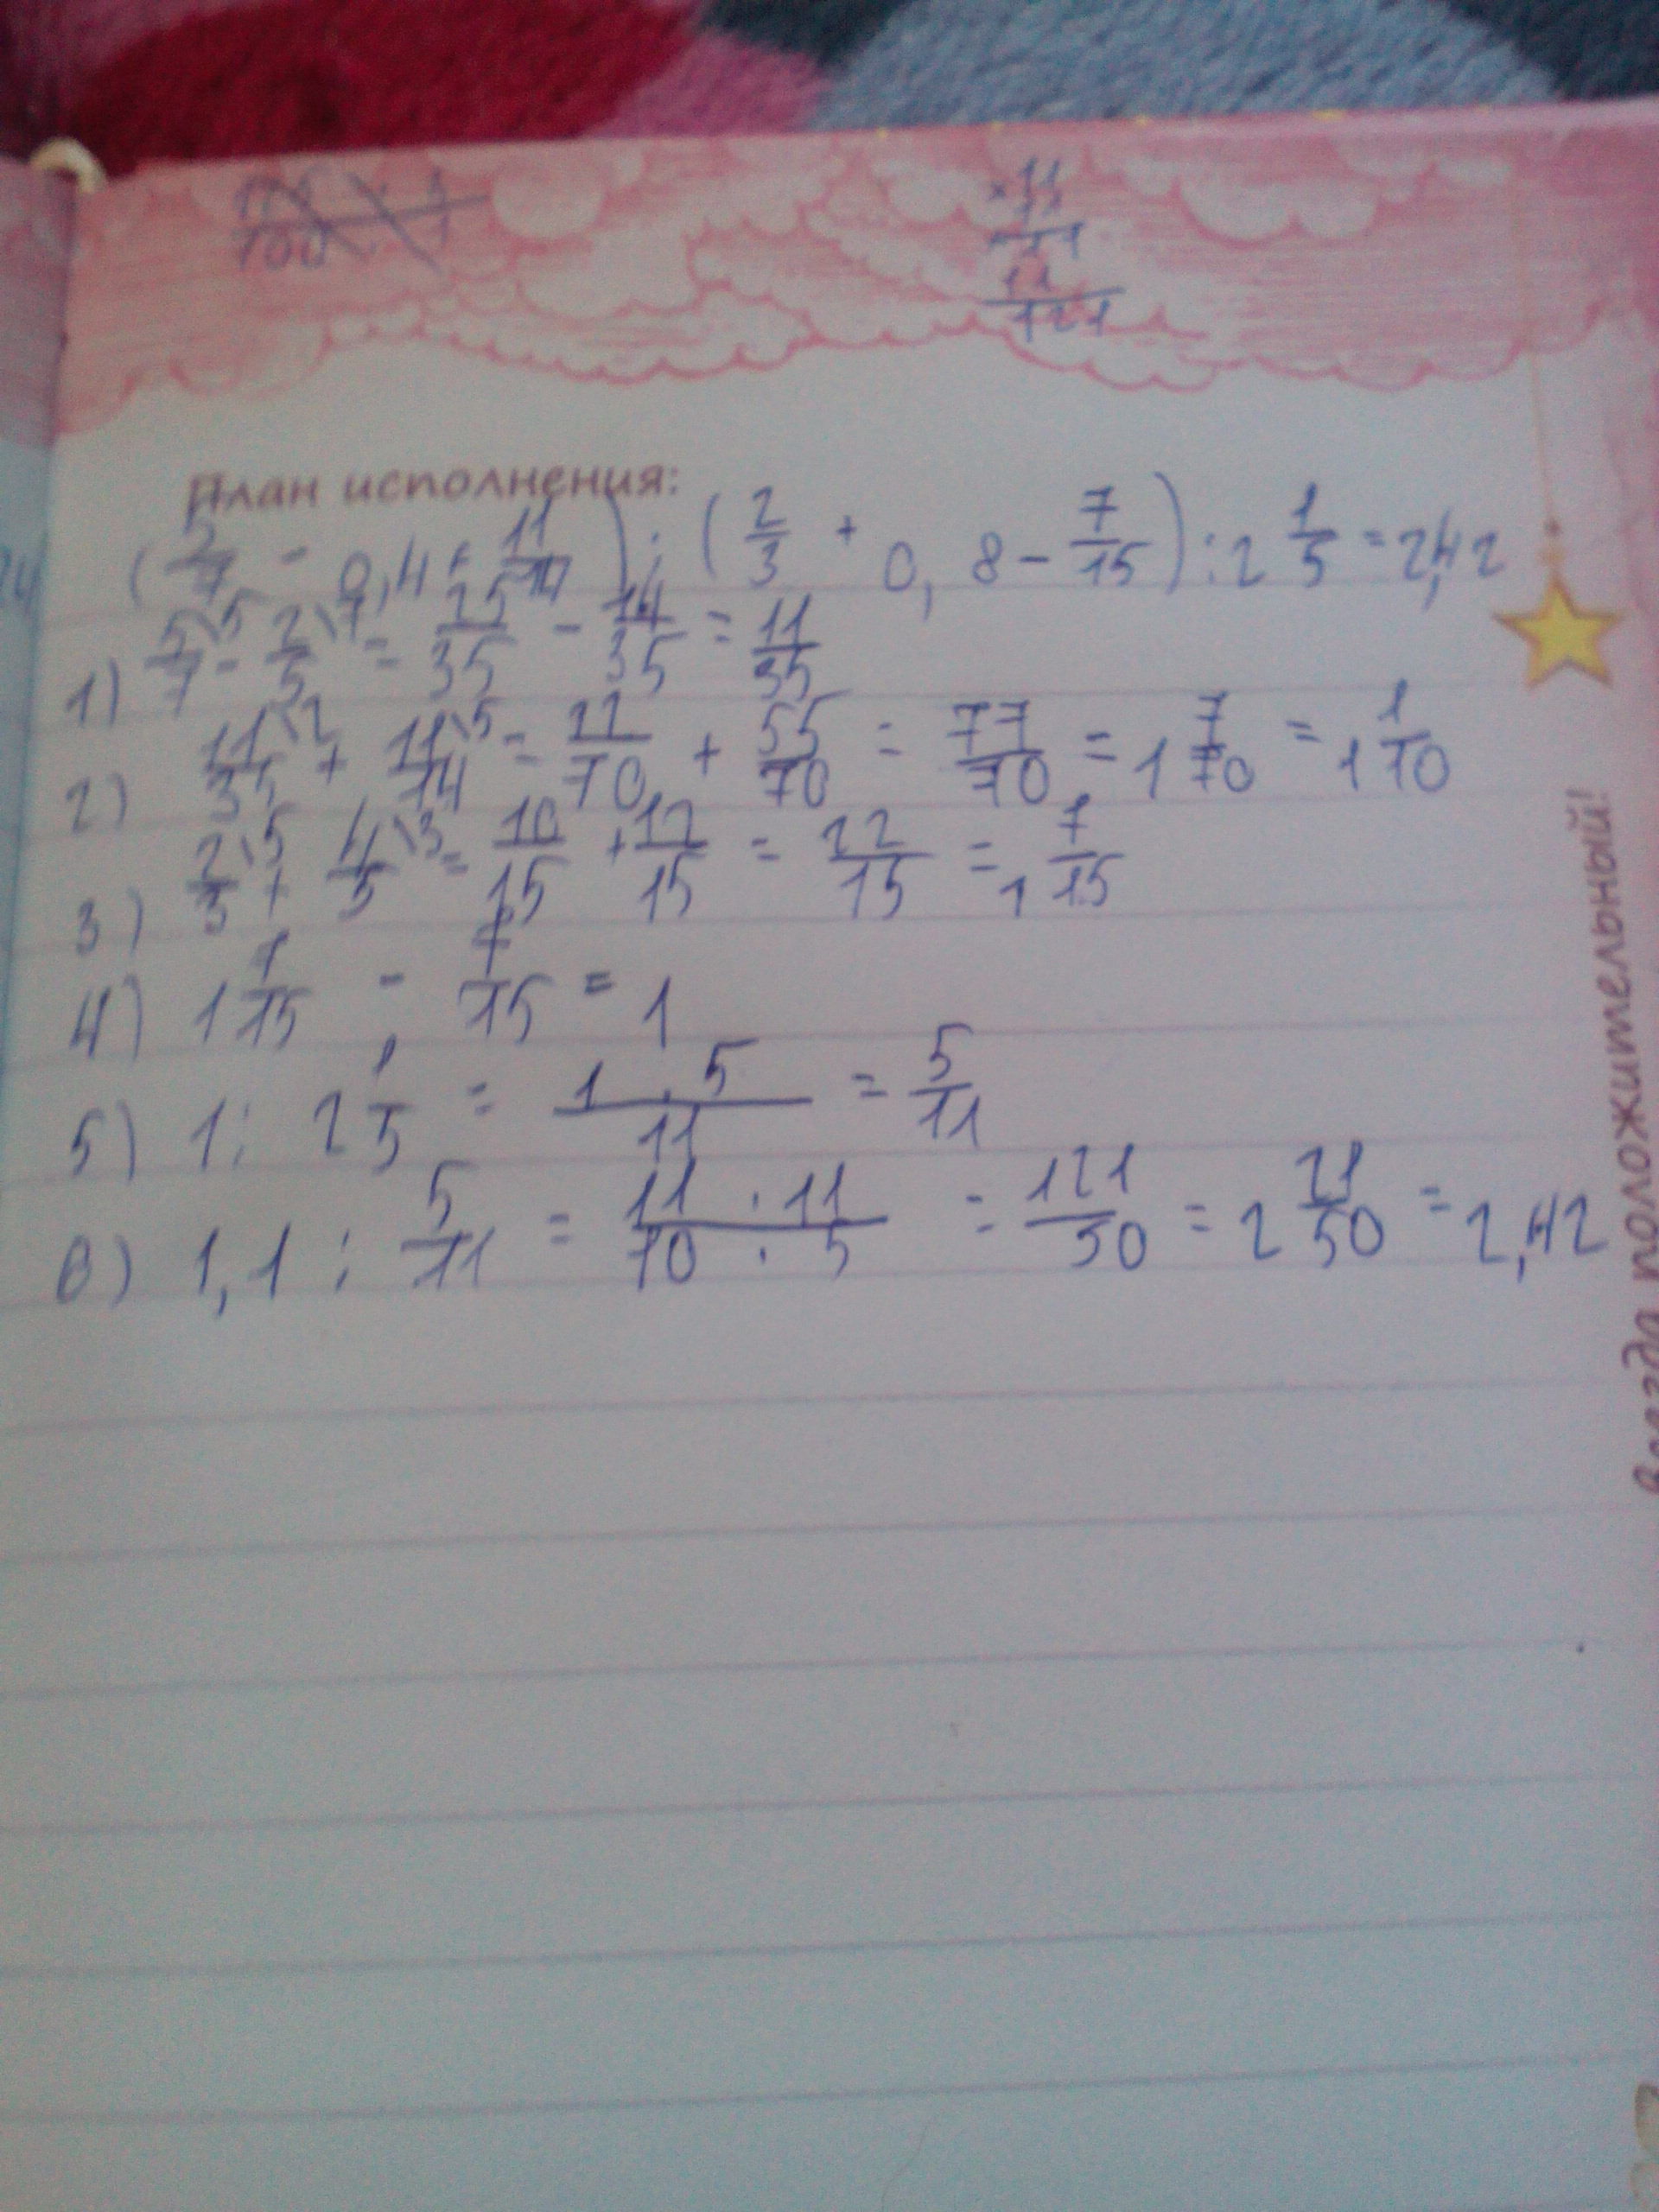 11
× 11
11
11
121
План исполнения:
(2/7 - 0,4 + 11/14) : (2/3 + 0,8 - 7/15) : 2 1/5 = 2,42
1) 5\5/7 - 2\7/5 = 25/35 - 14/35 = 11/35
2) 11\2/35 + 11\5/14 = 22/70 + 55/70 = 77/70 = 1 7/70 = 1 1/10
3) 2\5/3 + 4\3/5 = 10/15 + 12/15 = 22/15 = 1 7/15
4) 1 7/15 - 7/15 = 1
5) 1 : 2 1/5 = 1 · 5/11 = 5/11
6) 1,1 : 5/11 = 11 · 11/10 · 5 = 121/50 = 2 21/50 = 2,42
положительный!